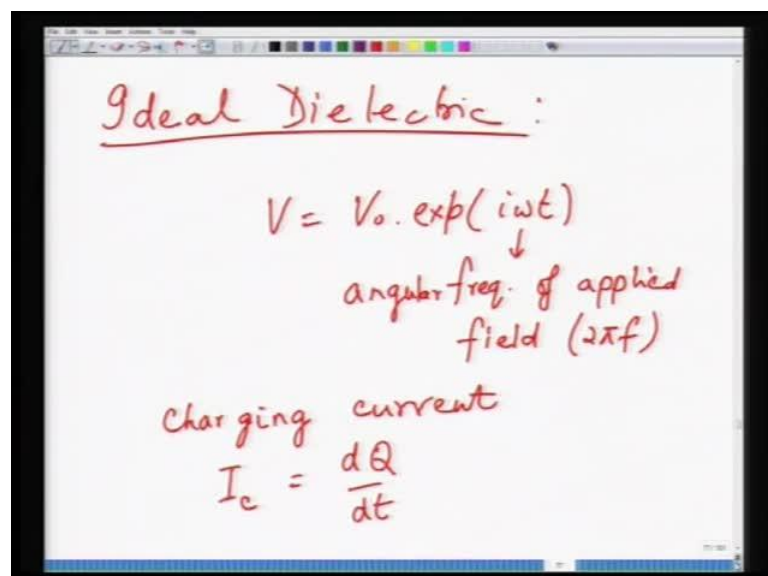 Ideal Dielectric :
V = V₀ . exp( iωt )
↓
angular freq. of applied
field (2πf)
Charging current
I_c = dQ/dt